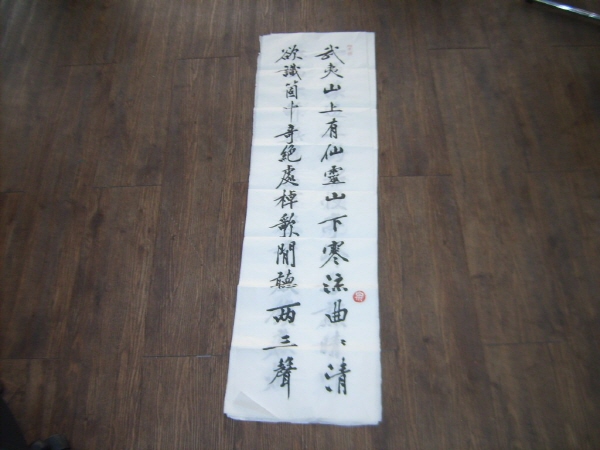 武夷山上有仙靈山下寒流曲〻清
欲識箇中奇絶處棹歌閒聽两三聲